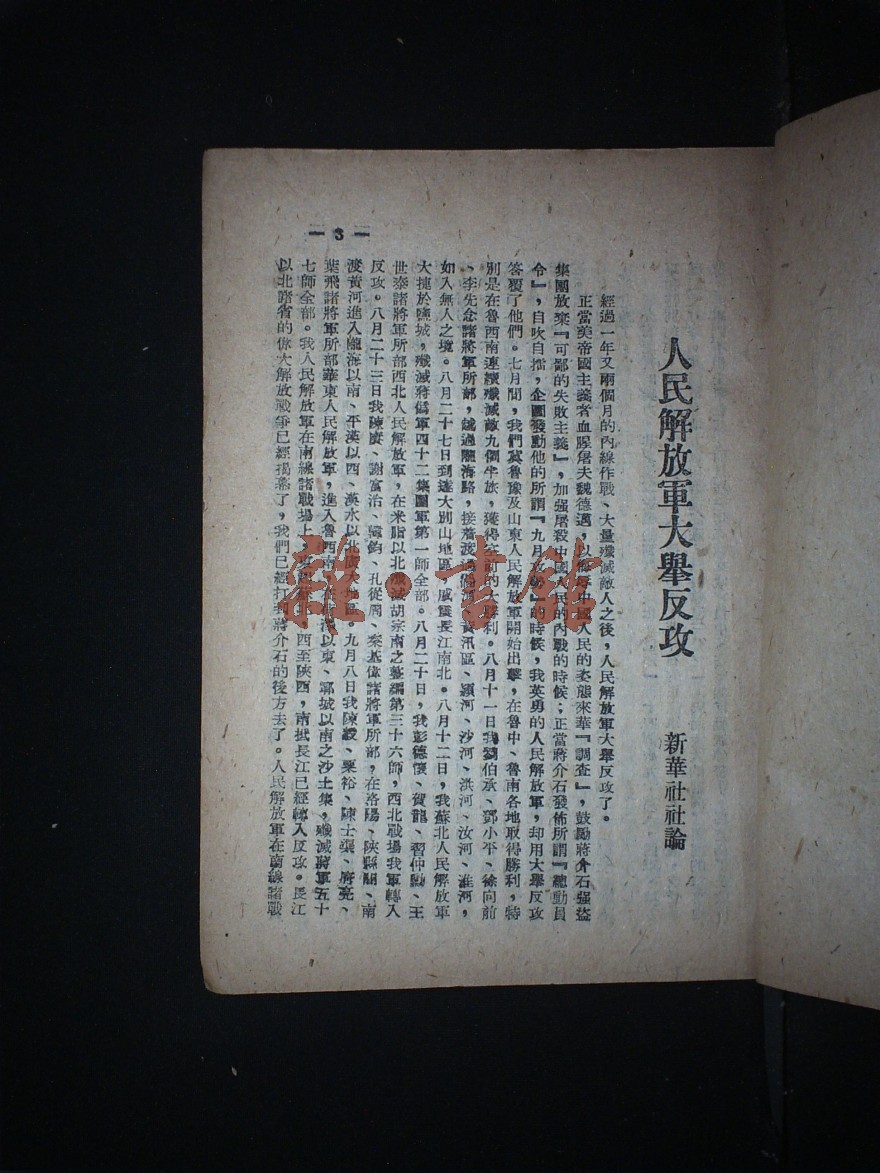 人民解放軍大舉反攻
新華社社論
經過一年又兩個月的內線作戰、大量殲滅敵人之後，人民解放軍大舉反攻了。
正當美帝國主義者血腥屠夫魏德邁，以侮辱中國人民的姿態來華『調查』，鼓勵蔣介石强盜
集團放棄『可鄙的失敗主義』，加强屠殺中國人民的內戰的時候；正當蔣介石發佈所謂『總動員
令』，自吹自擂，企圖發動他的所謂『九月攻勢』的時候，我英勇的人民解放軍，却用大舉反攻
答覆了他們。七月間，我們冀魯豫及山東人民解放軍開始出擊，在魯中、魯南各地取得勝利，特
別是在魯西南連續殲滅敵九個半旅，獲得空前的大勝利。八月十一日我劉伯承、鄧小平、徐向前
、李先念諸將軍所部，越過隴海路，接着渡過 黃汎區、潁河、沙河、洪河、汝河、淮河，
如入無人之境。八月二十七日到達大別山地區，威震長江南北。八月十二日，我蘇北人民解放軍
大捷於鹽城，殲滅蔣僞軍四十二集團軍第一師全部。八月二十日，我彭德懷、賀龍、習仲勳、王
世泰諸將軍所部西北人民解放軍，在米脂以北殲滅胡宗南之整編第三十六師，西北戰場我軍轉入
反攻。八月二十三日我陳賡、謝富治、韓鈞、孔從周、秦基偉諸將軍所部，在洛陽、陝縣間、南
渡黃河進入隴海以南、平漢以西、漢水以北廣大地區。九月八日我陳毅、粟裕、陳士榘、唐亮、
葉飛諸將軍所部華東人民解放軍，進入魯西南，在 以東、鄆城以南之沙土集，殲滅蔣軍五十
七師全部。我人民解放軍在南線諸戰場上，東起蘇北，西至陝西，南抵長江已經轉入反攻。長江
以北諸省的偉大解放戰爭已經揭幕了，我們已經打到蔣介石的後方去了。人民解放軍在南線諸戰
— 3 —
雜·書館